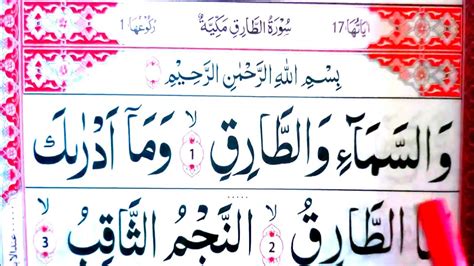 اٰيَاتُهَا 17 سُوْرَةُ الطَّارِقِ مَكِّيَّةٌ رُكُوْعُهَا 1
بِسْمِ اللهِ الرَّحْمٰنِ الرَّحِيْمِ
وَالسَّمَآءِ وَالطَّارِقِ ۙ 1 وَمَآ اَدْرٰىكَ
الطَّارِقُ ۙ 2 النَّجْمُ الثَّاقِبُ ۙ 3